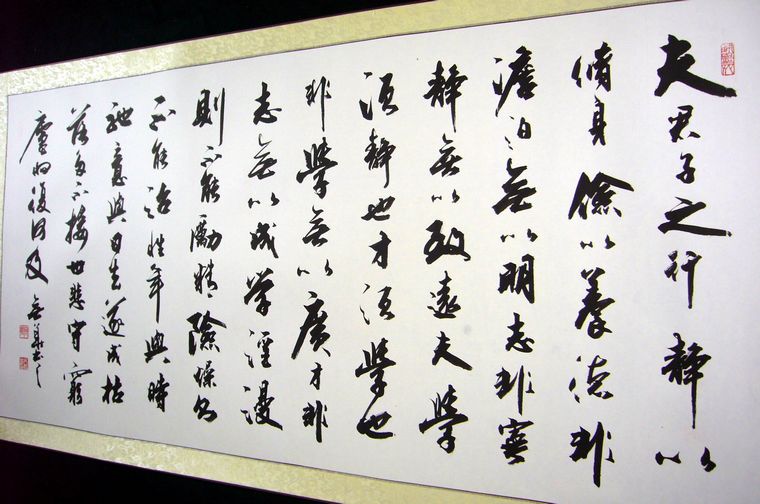 夫君子之行靜以
脩身儉以養德非
澹泊無以明志非寧
靜無以致遠夫學
須靜也才須學也
非學無以廣才非
志無以成学淫漫
則不能勵精險燥則
不能治性年與時
馳意與日去遂成枯
落多不接世悲守窮
廬将復何及